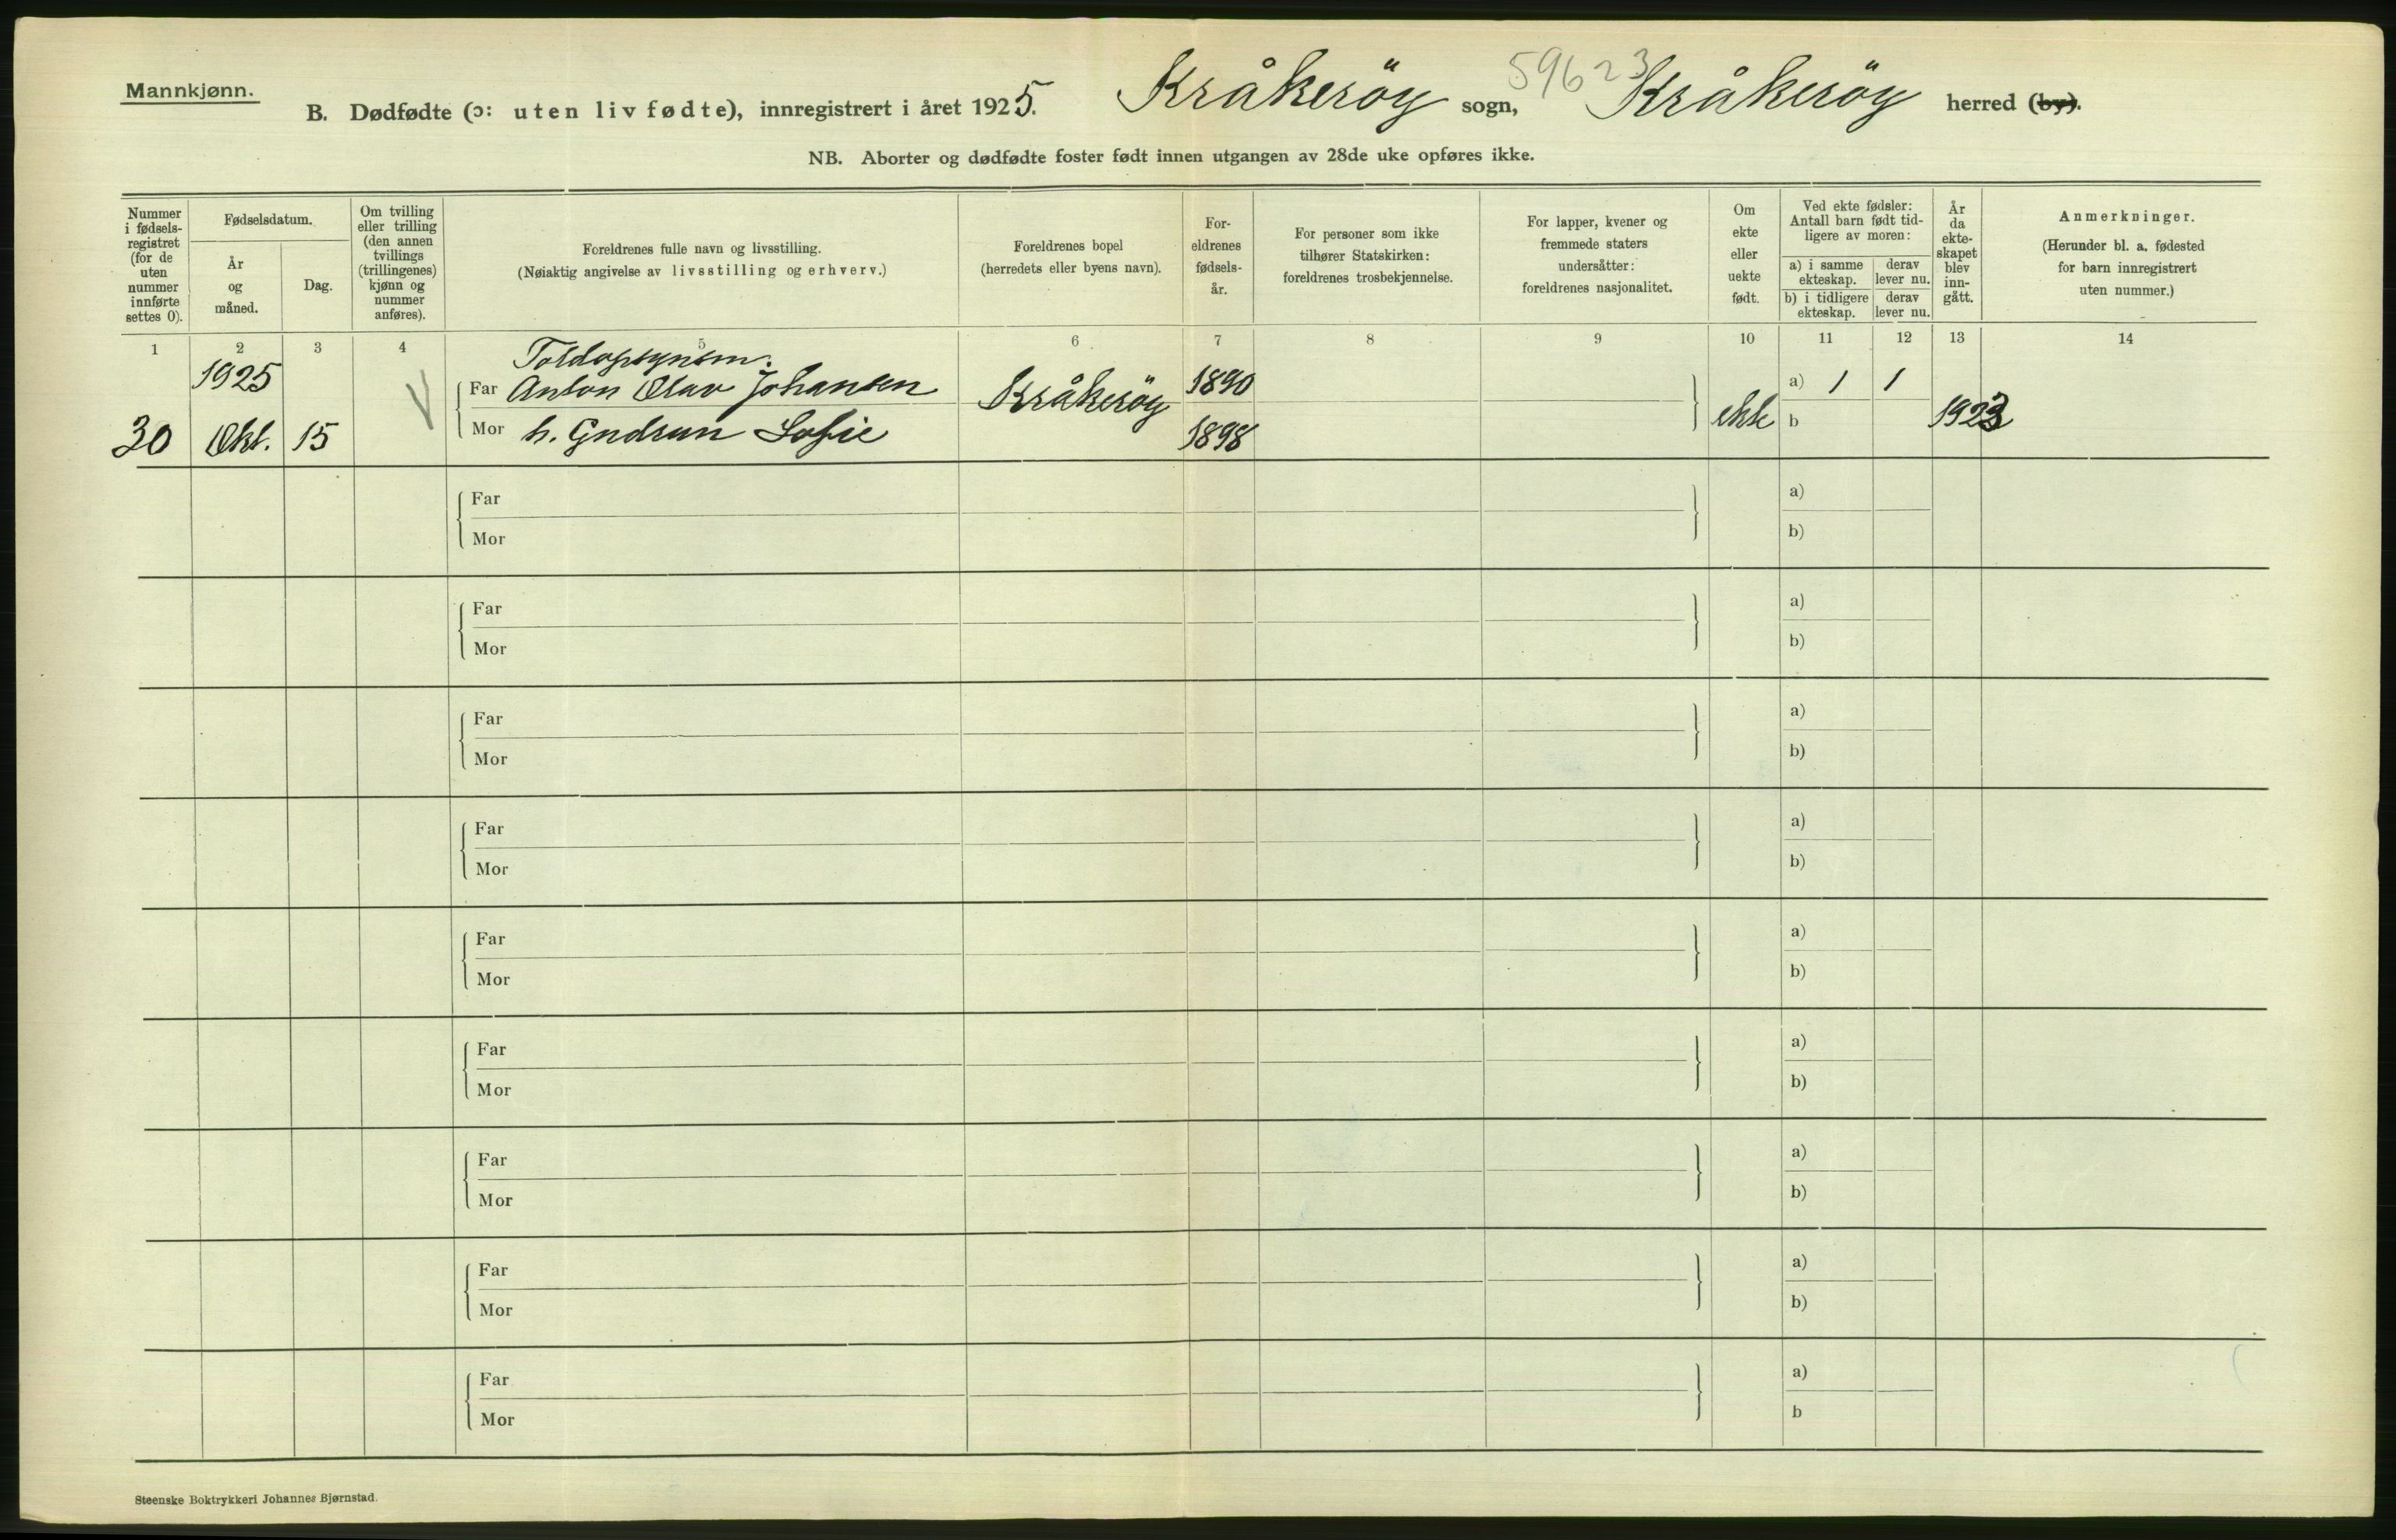 59623
Mannkjønn.
B. Dødfødte (ɔ: uten liv fødte), innregistrert i året 1925. Kråkeröy sogn, Kråkeröy herred (by).
NB. Aborter og dødfødte foster født innen utgangen av 28de uke opføres ikke.
Nummer i fødsels- registret (for de uten nummer innførte settes 0).
Fødselsdatum.
År og måned.
Dag.
Om tvilling eller trilling (den annen tvillings (trillingenes) kjønn og nummer anføres).
Foreldrenes fulle navn og livsstilling.
(Nøiaktig angivelse av livsstilling og erhverv.)
Foreldrenes bopel
(herredets eller byens navn).
For- eldrenes fødsels- år.
For personer som ikke tilhører Statskirken: foreldrenes trosbekjennelse.
For lapper, kvener og fremmede staters undersåtter: foreldrenes nasjonalitet.
Om ekte eller uekte født.
Ved ekte fødsler: Antall barn født tid- ligere av moren:
a) i samme ekteskap.
derav lever nu.
b) i tidligere ekteskap.
derav lever nu.
År da ekte- skapet blev inn- gått.
Anmerkninger.
(Herunder bl. a. fødested for barn innregistrert uten nummer.)
1 2 3 4 5 6 7 8 9 10 11 12 13 14
Toldopsynsm.
1925 Far Anton Olav Johansen Kråkeröy 1890 a) 1 1
30 Okt. 15 Mor h. Gudrun Sofie 1898 ekte b 1923
Far a)
Mor b)
Far a)
Mor b)
Far a)
Mor b)
Far a)
Mor b)
Far a)
Mor b)
Far a)
Mor b)
Far a)
Mor b)
Far a)
Mor b)
Far a)
Mor b
Steenske Boktrykkeri Johannes Bjørnstad.